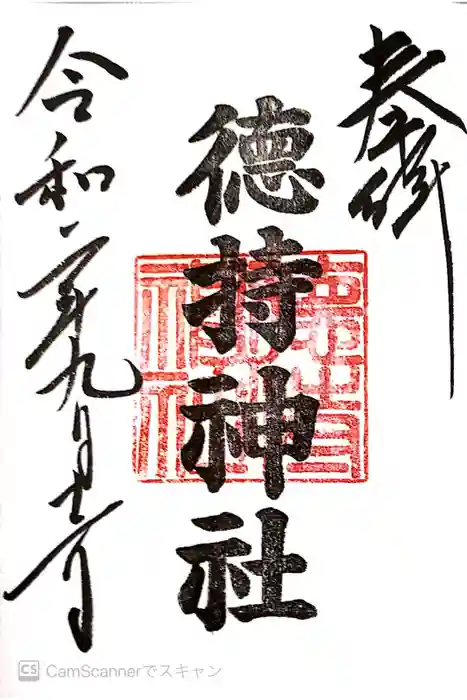 奉拝
徳持神社
令和二年九月十日
CS CamScannerでスキャン